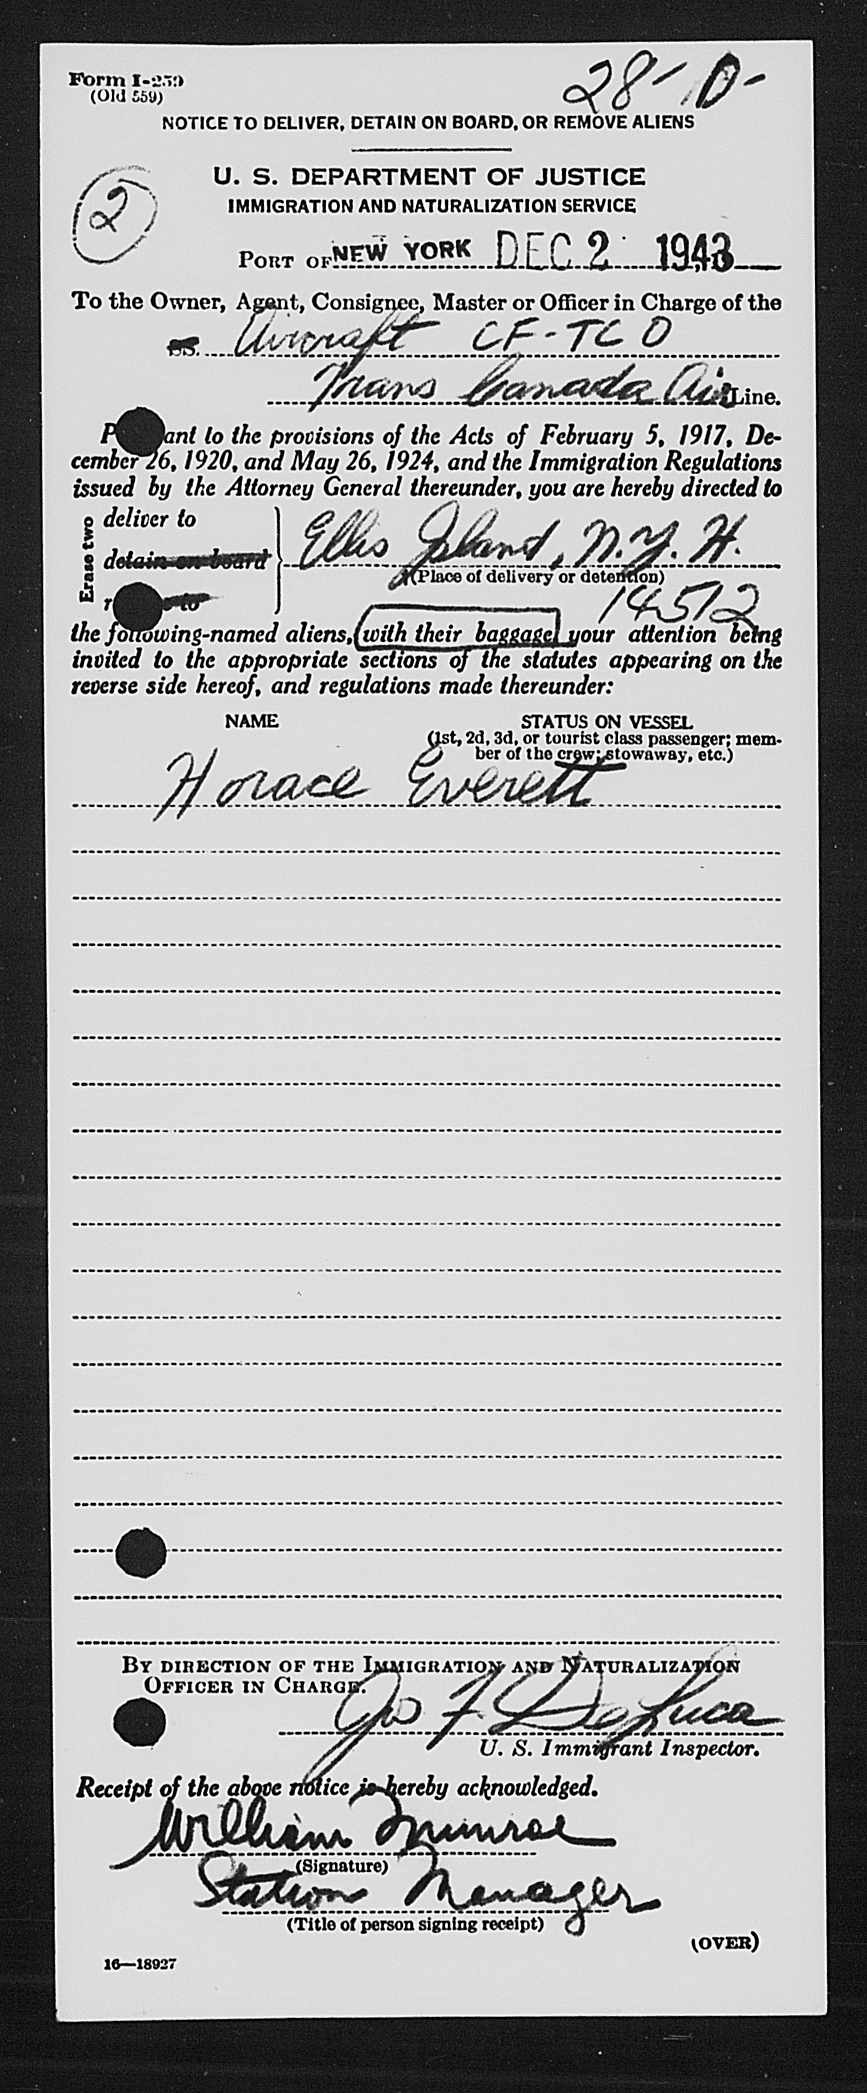 Form I-259
(Old 559)
28-D-
NOTICE TO DELIVER, DETAIN ON BOARD, OR REMOVE ALIENS
U. S. DEPARTMENT OF JUSTICE
IMMIGRATION AND NATURALIZATION SERVICE
2
PORT OF NEW YORK DEC 2 1943
To the Owner, Agent, Consignee, Master or Officer in Charge of the
SS. Aircraft CF-TCO
Trans Canada Air Line.
P ant to the provisions of the Acts of February 5, 1917, De-
cember 26, 1920, and May 26, 1924, and the Immigration Regulations
issued by the Attorney General thereunder, you are hereby directed to
Erase two
deliver to
detain on board
r to
Ellis Island, N.Y.H.
(Place of delivery or detention)
14512
the following-named aliens, with their baggage, your attention being
invited to the appropriate sections of the statutes appearing on the
reverse side hereof, and regulations made thereunder:
NAME STATUS ON VESSEL
(1st, 2d, 3d, or tourist class passenger; mem-
ber of the crew; stowaway, etc.)
Horace Everett
BY DIRECTION OF THE IMMIGRATION AND NATURALIZATION
OFFICER IN CHARGE.
Jos F DeLuca
U. S. Immigrant Inspector.
Receipt of the above notice is hereby acknowledged.
William Munroe
(Signature)
Station Manager
(Title of person signing receipt)
(OVER)
16—18927